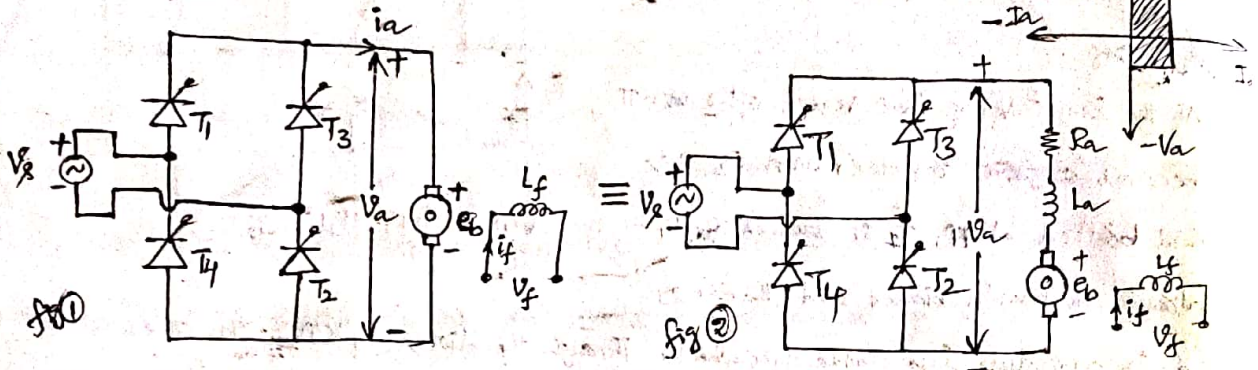 ia
+
T1
T3
+
Vs
-
Va
+
eb
-
Lf
if
Vf
T4
T2
-
fig ①
≡
- Ia
I
-Va
+
T1
T3
Ra
+
Vs
-
La
Va
+
eb
-
T4
T2
Lf
if
Vf
fig ②